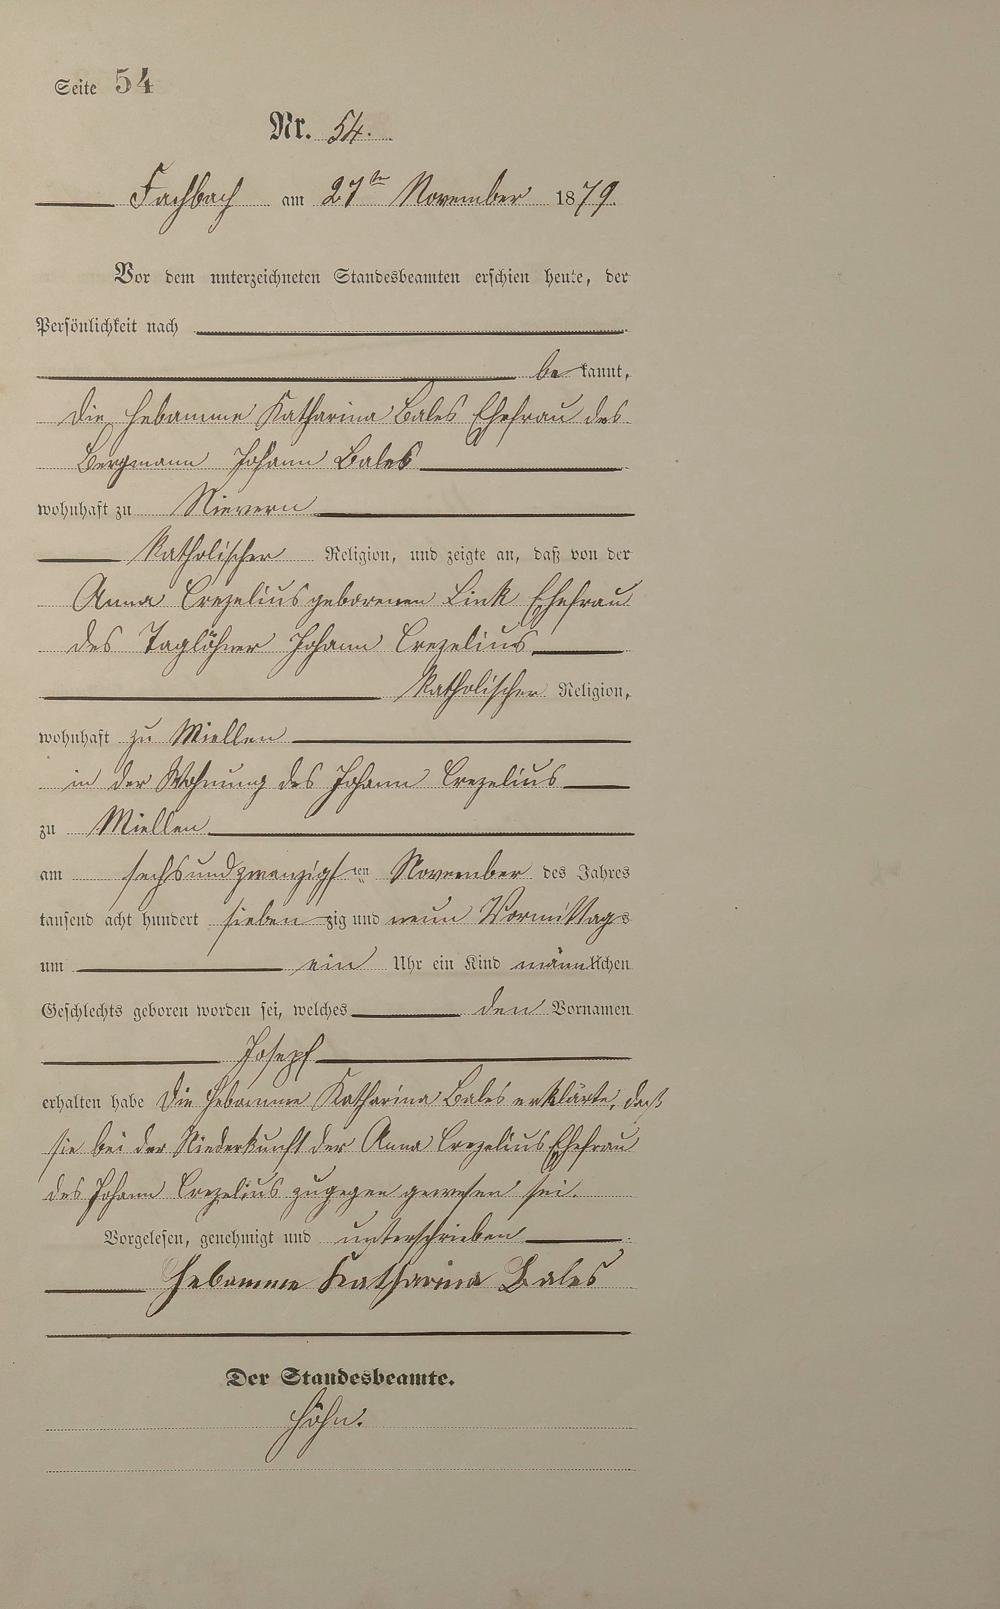 Seite 54
Nr. 54.
Fachbach am 27ten November 1879.
Vor dem unterzeichneten Standesbeamten erschien heute, der
Persönlichkeit nach
be kannt,
die Hebamme Katharina Bales Ehefrau des
Bergmann Johann Bales
wohnhaft zu Nievern
katholischer Religion, und zeigte an, daß von der
Anna Crezelius geborenen Link Ehefrau
des Taglöhner Johann Crezelius
katholischer Religion,
wohnhaft zu Miellen
in der Wohnung des Johann Crezelius
zu Miellen
am sechsundzwanzigsten November des Jahres
tausend acht hundert siebenzig und neun Vormittags
um ein Uhr ein Kind männlichen
Geschlechts geboren worden sei, welches den Vornamen
Joseph
erhalten habe Die Hebamme Katharina Bales erklärte, daß
sie bei der Niederkunft der Anna Crezelius Ehefrau
des Johann Crezelius zugegen gewesen sei.
Vorgelesen, genehmigt und unterschrieben
Hebamme Katharina Bales
Der Standesbeamte.
Höhn.